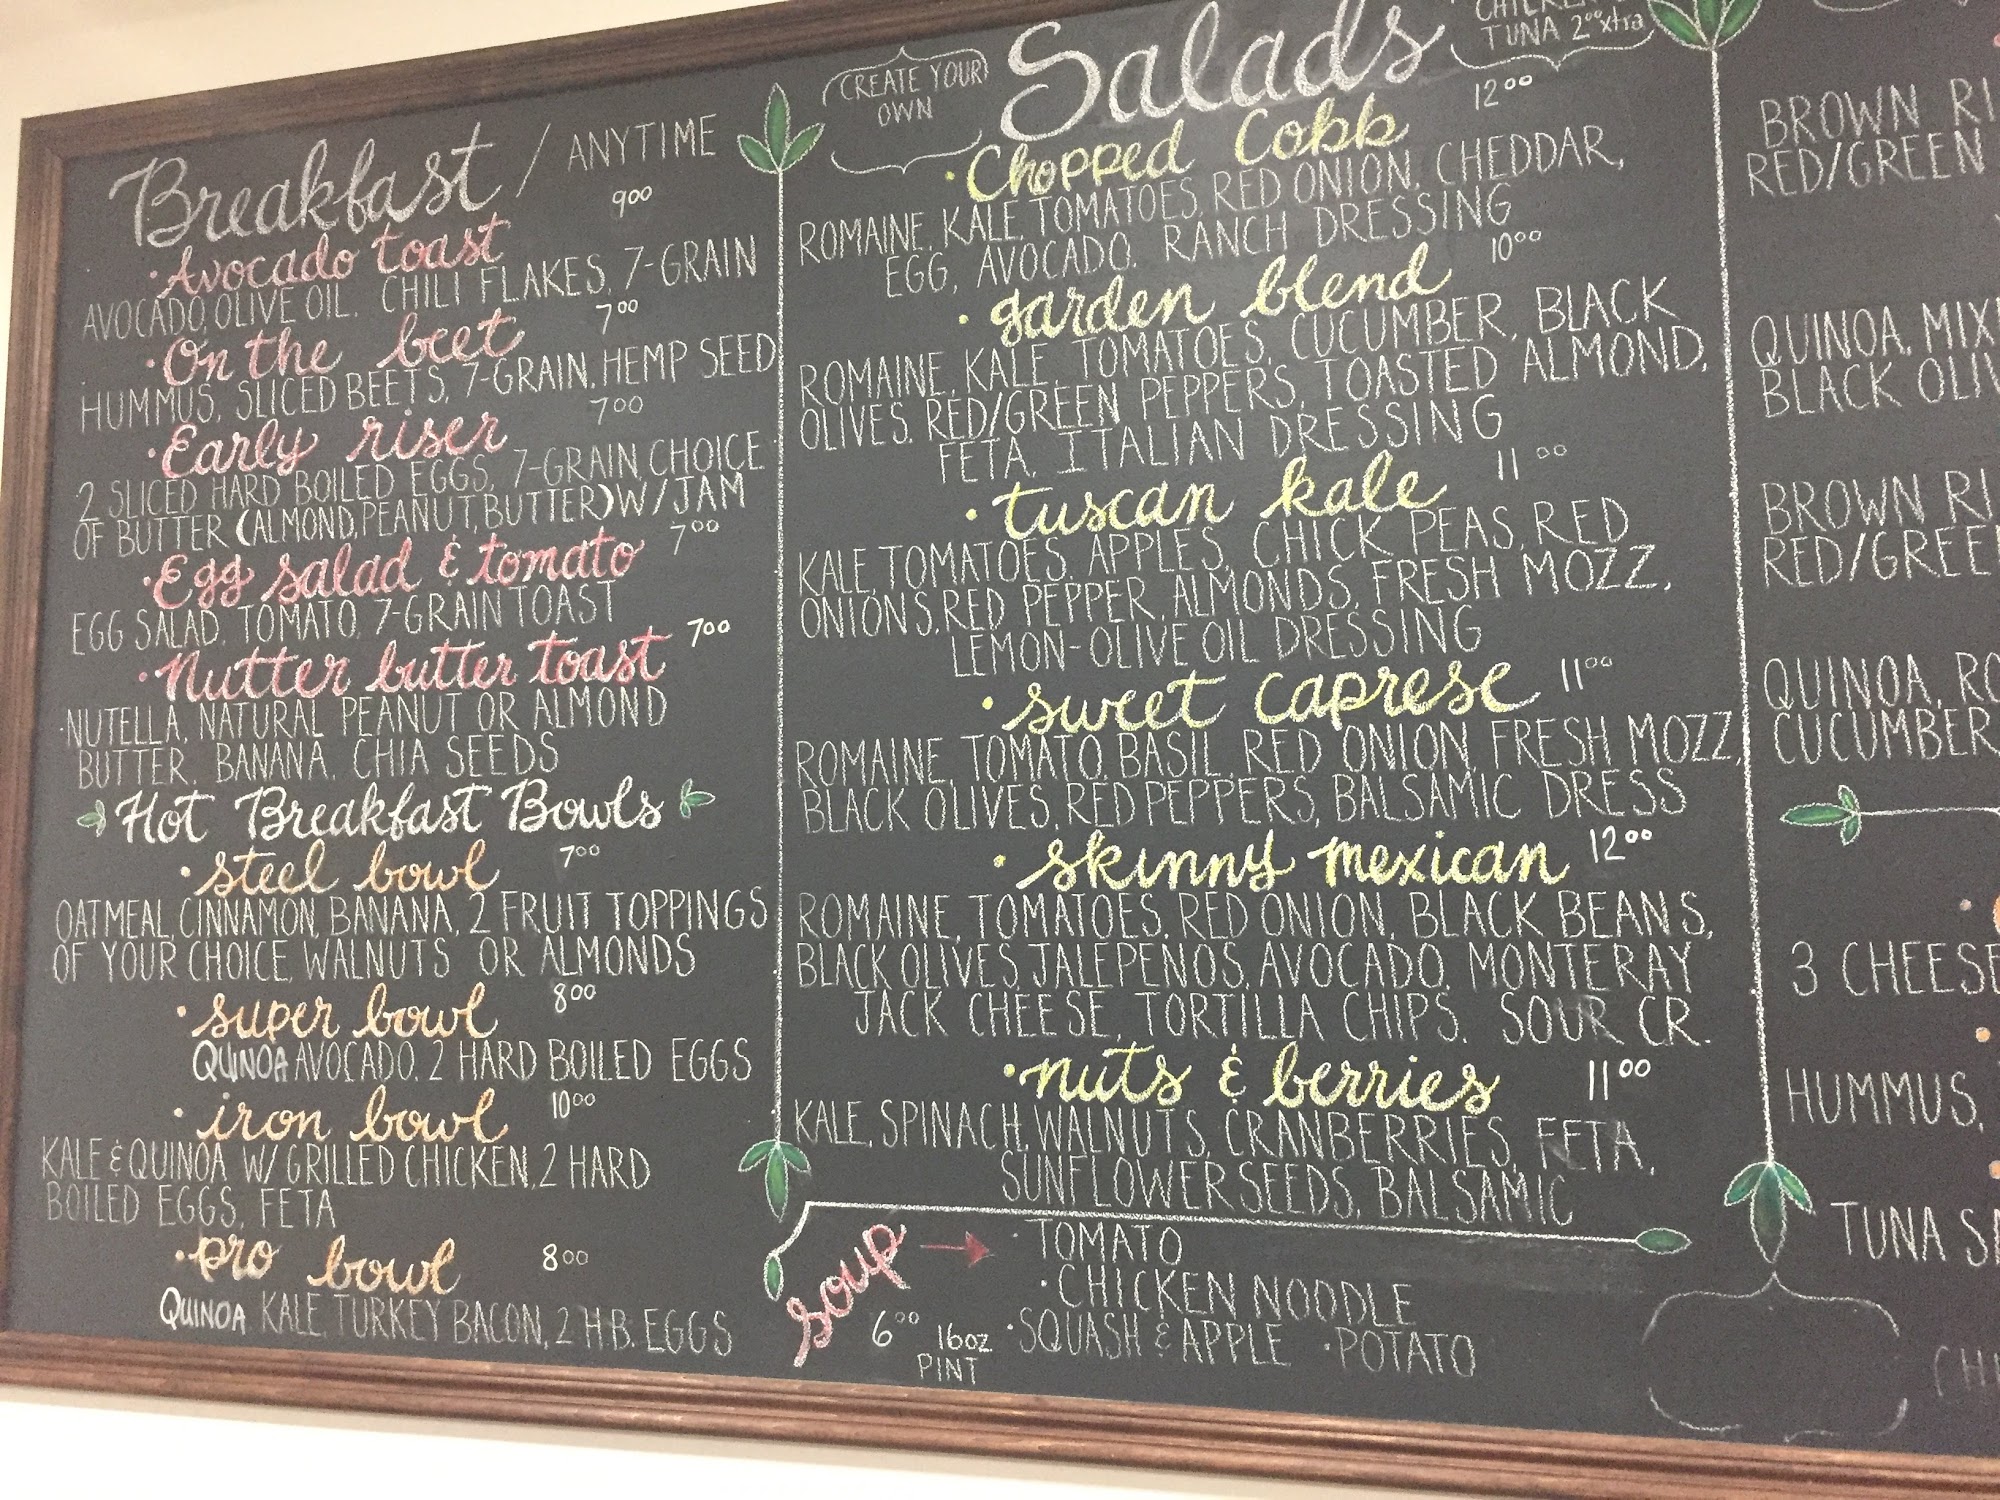 Breakfast / ANYTIME
• Avocado toast 9⁰⁰
AVOCADO, OLIVE OIL, CHILI FLAKES, 7-GRAIN
• On the beet 7⁰⁰
HUMMUS, SLICED BEETS, 7-GRAIN, HEMP SEED
• Early riser 7⁰⁰
2 SLICED HARD BOILED EGGS, 7-GRAIN, CHOICE
OF BUTTER (ALMOND, PEANUT, BUTTER) W/JAM
• Egg salad & tomato 7⁰⁰
EGG SALAD, TOMATO, 7-GRAIN TOAST
• Nutter butter toast 7⁰⁰
NUTELLA, NATURAL PEANUT OR ALMOND
BUTTER, BANANA, CHIA SEEDS
Hot Breakfast Bowls
• steel bowl 7⁰⁰
OATMEAL, CINNAMON, BANANA, 2 FRUIT TOPPINGS
OF YOUR CHOICE, WALNUTS OR ALMONDS
• super bowl 8⁰⁰
QUINOA AVOCADO, 2 HARD BOILED EGGS
• iron bowl 10⁰⁰
KALE & QUINOA W/ GRILLED CHICKEN, 2 HARD
BOILED EGGS, FETA
• pro bowl 8⁰⁰
QUINOA, KALE, TURKEY BACON, 2 H.B. EGGS
CREATE YOUR
OWN
Salads
TUNA 2⁰⁰ xtra
• Chopped Cobb 12⁰⁰
ROMAINE, KALE, TOMATOES, RED ONION, CHEDDAR,
EGG, AVOCADO, RANCH DRESSING
• garden blend 10⁰⁰
ROMAINE, KALE, TOMATOES, CUCUMBER, BLACK
OLIVES, RED/GREEN PEPPERS, TOASTED ALMOND,
FETA, ITALIAN DRESSING
• tuscan kale 11⁰⁰
KALE, TOMATOES, APPLES, CHICK PEAS, RED
ONIONS, RED PEPPER, ALMONDS, FRESH MOZZ,
LEMON-OLIVE OIL DRESSING
• sweet caprese 11⁰⁰
ROMAINE, TOMATO, BASIL, RED ONION, FRESH MOZZ,
BLACK OLIVES, RED PEPPERS, BALSAMIC DRESS
• skinny mexican 12⁰⁰
ROMAINE, TOMATOES, RED ONION, BLACK BEANS,
BLACK OLIVES, JALEPENOS, AVOCADO, MONTERAY
JACK CHEESE, TORTILLA CHIPS, SOUR CR.
• nuts & berries 11⁰⁰
KALE, SPINACH, WALNUTS, CRANBERRIES, FETA,
SUNFLOWER SEEDS, BALSAMIC
soup
6⁰⁰ 16oz
PINT
• TOMATO
• CHICKEN NOODLE
• SQUASH & APPLE • POTATO
BROWN RI
RED/GREEN
QUINOA, MIX
BLACK OLIV
BROWN RI
RED/GREE
QUINOA, RO
CUCUMBER
3 CHEESE
HUMMUS,
TUNA SA